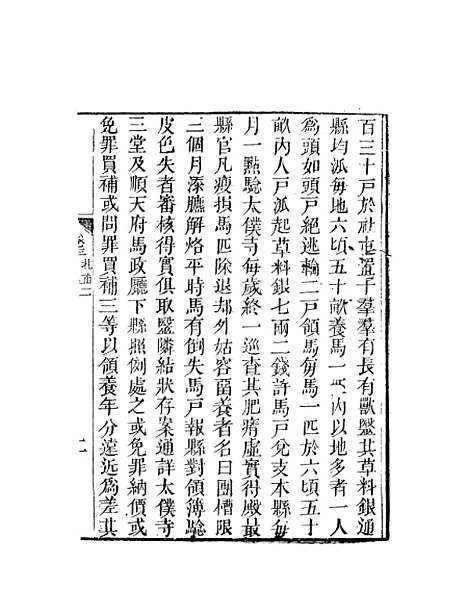 百三十戸於社屯置子羣羣有長有獸毉其草料銀通
縣均派每地六頃五十畝養馬一匹內以地多者一人
為頭如頭戸絕逃輪二戸領馬每馬一匹於六頃五十
畝內人戸派起草料銀七兩二錢許馬戸兌支本縣每
月一點驗太僕寺每歲終一巡查其肥瘠虛實得殿最
縣官凡瘦損馬匹除退却外姑容畱養者名曰團槽限
三個月添臕解烙平時馬有倒失馬戸報縣對領簿驗
皮色失者審核得實俱取毉隣結狀存案通詳太僕寺
三堂及順天府馬政廳下縣照例處之或免罪納價或
免罪買補或問罪買補三等以領養年分遠近為差其